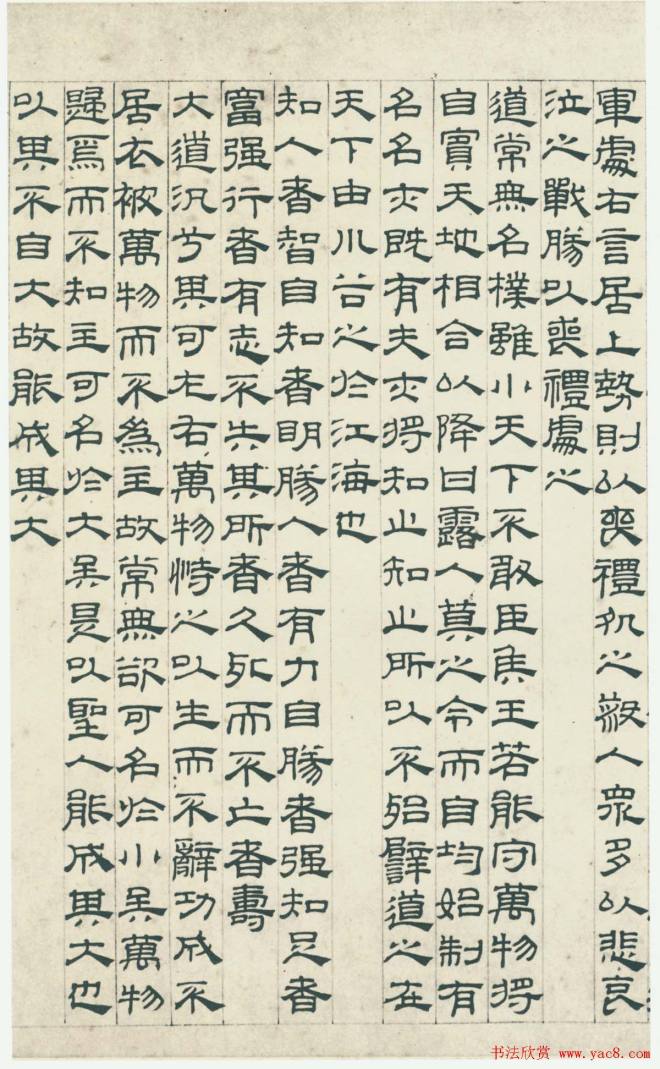 軍處右言居上勢則以喪禮処之殺人眾多以悲哀
泣之戰勝以喪禮處之
道常無名樸雖小天下不敢臣矦王若能守萬物將
自賓天地相合以降甘露人莫之令而自均始制有
名名亦既有夫亦將知止知止所以不殆譬道之在
天下由川谷之於江海也
知人者智自知者明勝人者有力自勝者强知足者
富强行者有志不失其所者久死而不亡者壽
大道汎兮其可左右萬物恃之以生而不辭功成不
居衣被萬物而不為主故常無欲可名於小矣萬物
歸焉而不知主可名於大矣是以聖人能成其大也
以其不自大故能成其大
书法欣赏 www.yac8.com